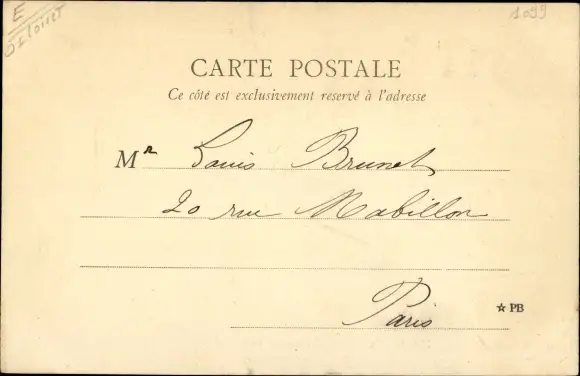 E
1099
CARTE POSTALE
Ce côté est exclusivement reservé à l'adresse
Mr Louis Brunet
20 rue Mabillon
Paris
☆ PB